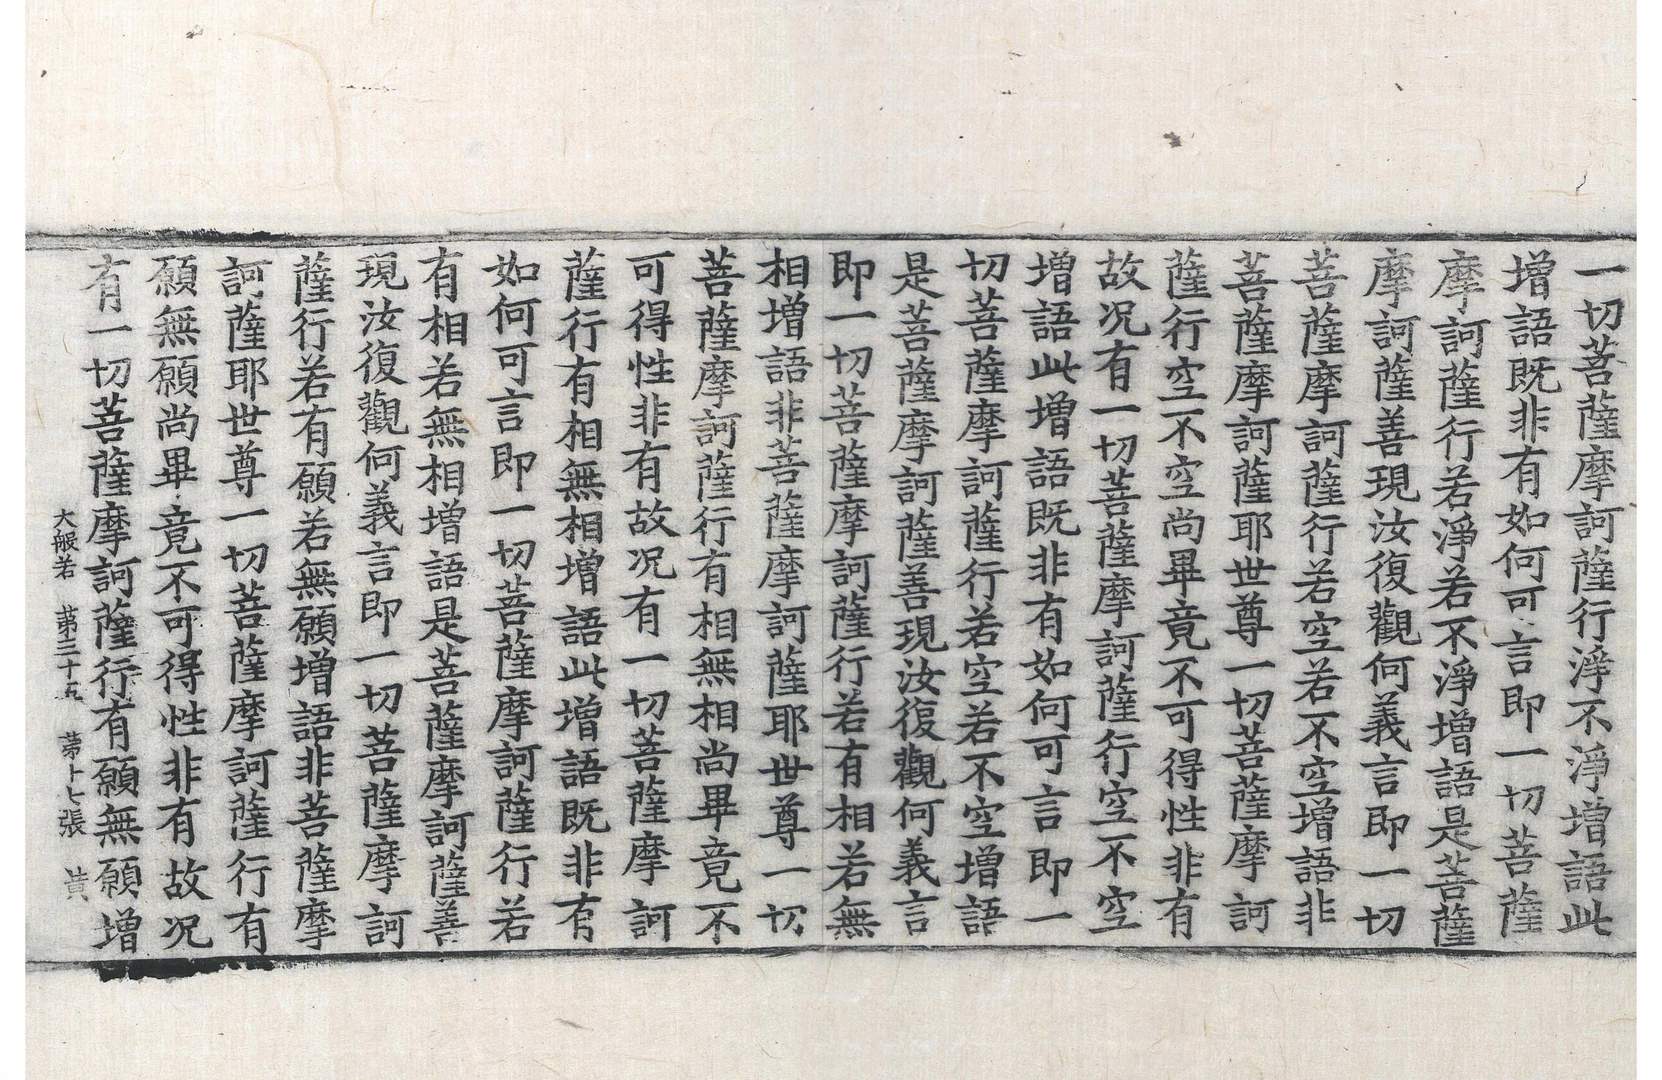 一切菩薩摩訶薩行淨不淨增語此
增語既非有如何可言即一切菩薩
摩訶薩行若淨若不淨增語是菩薩
摩訶薩善現汝復觀何義言即一切
菩薩摩訶薩行若空若不空增語非
菩薩摩訶薩耶世尊一切菩薩摩訶
薩行空不空尚畢竟不可得性非有
故况有一切菩薩摩訶薩行空不空
增語此增語既非有如何可言即一
切菩薩摩訶薩行若空若不空增語
是菩薩摩訶薩善現汝復觀何義言
即一切菩薩摩訶薩行若有相若無
相增語非菩薩摩訶薩耶世尊一切
菩薩摩訶薩行有相無相尚畢竟不
可得性非有故况有一切菩薩摩訶
薩行有相無相增語此增語既非有
如何可言即一切菩薩摩訶薩行若
有相若無相增語是菩薩摩訶薩善
現汝復觀何義言即一切菩薩摩訶
薩行若有願若無願增語非菩薩摩
訶薩耶世尊一切菩薩摩訶薩行有
願無願尚畢竟不可得性非有故况
有一切菩薩摩訶薩行有願無願增
大般若 第三十五 第十七張 黄